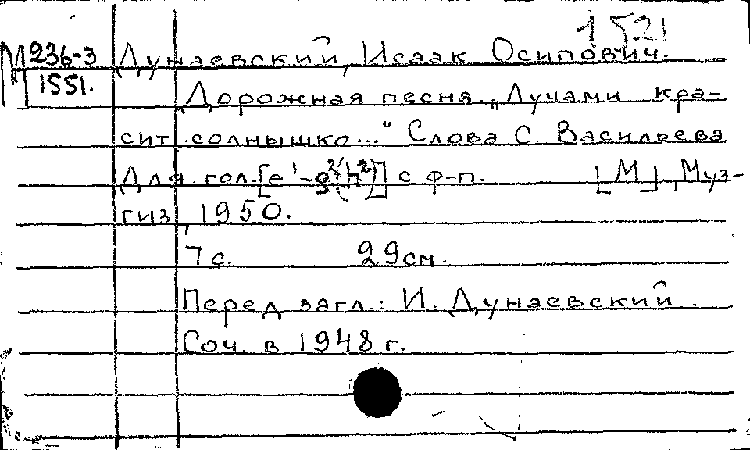 1521
М 236-3 Дунаевский, Исаак Осипович.
1551. Дорожная песня. „Лучами кра-
сит солнышко..." Слова С Васильева
Для гол. [e¹-g²(h²)] с ф-п. [М], Муз-
гиз, 1950.
7 с. 29 см
Перед загл.: И. Дунаевский
Соч. в 1948 г.